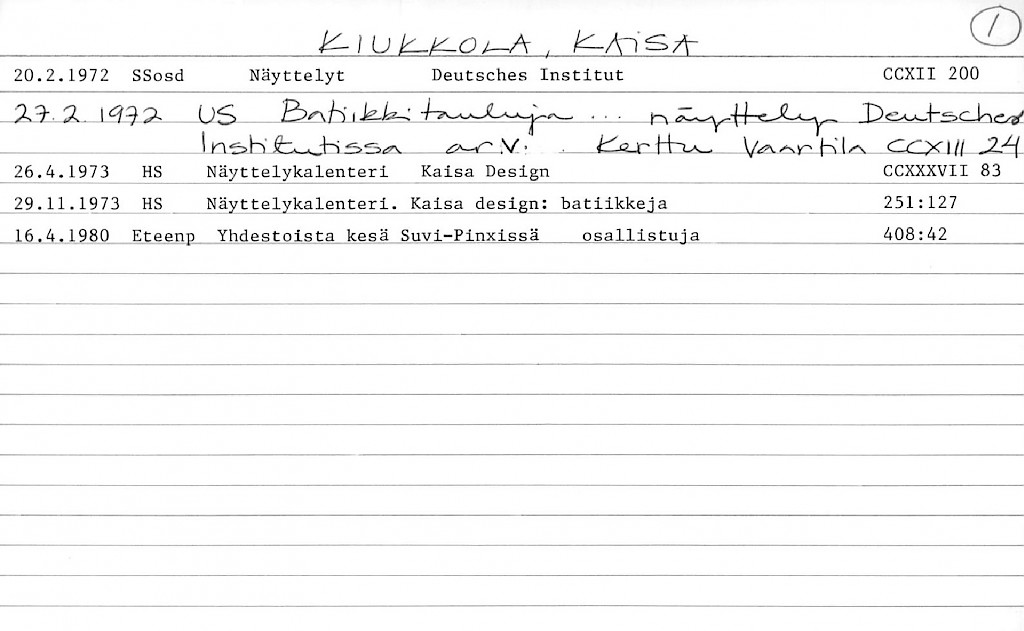 1
KIUKKOLA, KAISA
20.2.1972 SSosd Näyttelyt Deutsches Institut CCXII 200
27.2.1972 US Batiikkitauluja ... näyttely Deutsches
Institutissa arv. Kerttu Vaartila CCXIII 24
26.4.1973 HS Näyttelykalenteri Kaisa Design CCXXXVII 83
29.11.1973 HS Näyttelykalenteri. Kaisa design: batiikkeja 251:127
16.4.1980 Eteenp Yhdestoista kesä Suvi-Pinxissä osallistuja 408:42